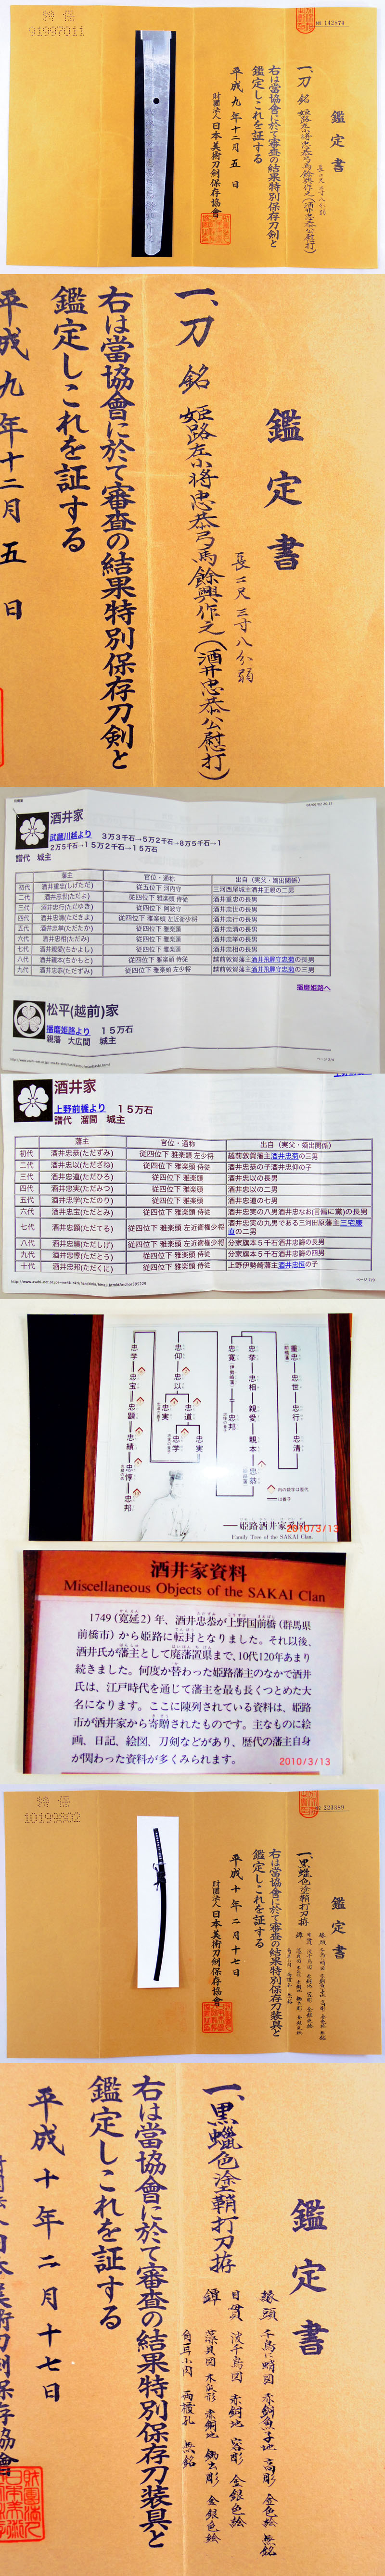 特保
91997011
No 142874
鑑定書
一、刀 銘 姫路左少将忠恭弓馬餘興作之(酒井忠恭公慰打)
長二尺三寸八分弱
右は當協會に於て審査の結果特別保存刀剣と
鑑定しこれを証する
平成九年十二月五日
財團法人日本美術刀剣保存協會
鑑定書
長二尺三寸八分弱
一、刀 銘 姫路左少将忠恭弓馬餘興作之(酒井忠恭公慰打)
右は當協會に於て審査の結果特別保存刀剣と
鑑定しこれを証する
平成九年十二月五日
酒井家
武蔵川越より 3万3千石→5万2千石→8万5千石→1
2万5千石→15万2千石→15万石
譜代 城主
藩主 官位・通称 出自(実父・嫡出関係)
初代 酒井重忠(しげただ) 従五位下 河内守 三河西尾城主酒井正親の二男
二代 酒井忠世(ただよ) 従四位下 雅楽頭 侍従 酒井重忠の長男
三代 酒井忠行(ただゆき) 従四位下 阿波守 酒井忠世の長男
四代 酒井忠清(ただきよ) 従四位下 雅楽頭 左近衛少将 酒井忠行の長男
五代 酒井忠挙(ただたか) 従四位下 雅楽頭 酒井忠清の長男
六代 酒井忠相(ただみ) 従四位下 雅楽頭 酒井忠挙の長男
七代 酒井親愛(ちかよし) 従四位下 雅楽頭 酒井忠相の長男
八代 酒井親本(ちかもと) 従四位下 雅楽頭 侍従 越前敦賀藩主酒井飛騨守忠菊の長男
九代 酒井忠恭(ただずみ) 従四位下 雅楽頭 左少将 越前敦賀藩主酒井飛騨守忠菊の三男
播磨姫路へ
松平(越前)家
播磨姫路より 15万石
親藩 大広間 城主
酒井家
上野前橋より 15万石
譜代 溜間 城主
藩主 官位・通称 出自(実父・嫡出関係)
初代 酒井忠恭(ただずみ) 従四位下 雅楽頭 左少将 越前敦賀藩主酒井忠菊の三男
二代 酒井忠以(ただざね) 従四位下 雅楽頭 侍従 酒井忠恭の子酒井忠仰の子
三代 酒井忠道(ただひろ) 従四位下 雅楽頭 酒井忠以の長男
四代 酒井忠実(ただみつ) 従四位下 雅楽頭 酒井忠以の二男
五代 酒井忠学(ただのり) 従四位下 雅楽頭 酒井忠道の七男
六代 酒井忠宝(ただとみ) 従四位下 雅楽頭 侍従 酒井忠実の八男酒井忠なお(言偏に薫)の長男
七代 酒井忠顕(ただてる) 従四位下 雅楽頭 左近衛権少将 酒井忠実の九男である三河田原藩主三宅康直の二男
八代 酒井忠績(ただしげ) 従四位下 雅楽頭 左近衛権少将 分家旗本5千石酒井忠誨の長男
九代 酒井忠惇(ただとう) 従四位下 雅楽頭 侍従 分家旗本5千石酒井忠誨の四男
十代 酒井忠邦(ただくに) 従四位下 雅楽頭 侍従 上野伊勢崎藩主酒井忠恒の子
重忠―忠世―忠行―忠清
忠挙―忠相―親愛―親本―忠恭
忠寛 (伊勢崎藩)―□―忠邦
忠仰―忠以 忠道―忠実
忠実 忠学
忠学―忠宝―忠顕―忠績―忠惇―忠邦
内の数字は歴代
は養子
姫路酒井家系図
Family Tree of the SAKAI Clan.
2010/3/13
酒井家資料
Miscellaneous Objects of the SAKAI Clan
1749(寛延2)年、酒井忠恭が上野国前橋(群馬県
前橋市)から姫路に転封となりました。それ以後、
酒井氏が藩主として廃藩置県まで、10代120年あまり
続きました。何度か替わった姫路藩主のなかで酒井
氏は、江戸時代を通じて藩主を最も長くつとめた大
名になります。ここに陳列されている資料は、姫路
市が酒井家から寄贈されたものです。主なものに絵
画、日記、絵図、刀剣などがあり、歴代の藩主自身
が関わった資料が多くみられます。
2010/3/13
特保
10199802
No 223389
鑑定書
一、黒蠟色塗鞘打刀拵
右は當協會に於て審査の結果特別保存刀装具と
鑑定しこれを証する
平成十年二月十七日
財團法人日本美術刀剣保存協會
鑑定書
一、黒蠟色塗鞘打刀拵
縁頭 千鳥に蛸図 赤銅魚子地 高彫 金色絵 無銘
目貫 波千鳥図 赤銅地 容彫 金銀色絵
鐔 藻貝図 木瓜形 赤銅地 鋤出彫 金銀色絵
角耳小肉 両櫃孔 無銘
右は當協會に於て審査の結果特別保存刀装具と
鑑定しこれを証する
平成十年二月十七日
財團法人日本美術刀剣保存協會